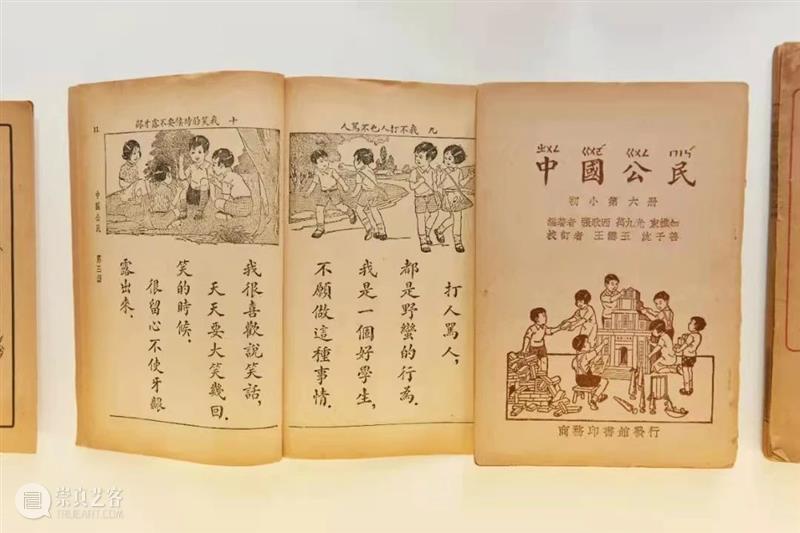 九 我不打人也不罵人
打人罵人,
都是野蠻的行為.
我是一個好學生,
不願做這種事情.
十 我笑的時候要不露牙齦
我很喜歡說笑話,
天天要大笑幾回.
笑的時候,
很留心不使牙齦
露出來.
中國公民 第三冊
11
ㄓㄨㄥ ㄍㄨㄛˊ ㄍㄨㄥ ㄇㄧㄣˊ
中國公民
初小第六册
編著者 張耿西 萬九光 束樵如
校訂者 王 沈子善
商務印書館發行
崇真艺客
TRUEART.COM